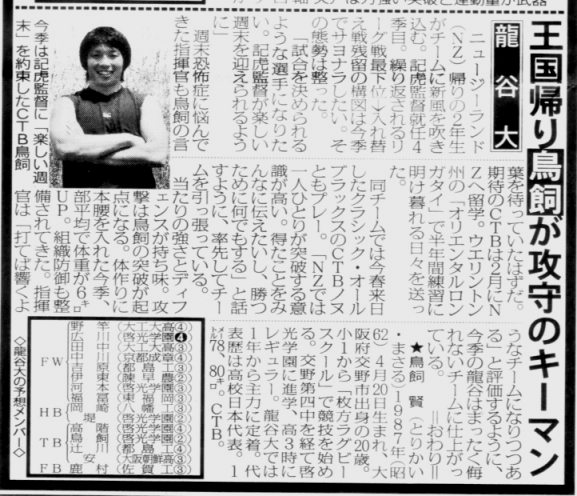 王国帰り鳥飼が攻守のキーマン
龍谷大
ニュージーランド
（NZ）帰りの2年生
がチームに新風を吹き
込む。記虎監督就任4
季目。繰り返されるリ
ーグ戦最下位→入れ替
え戦残留の構図は今季
でサヨナラしたい。そ
の態勢は整った。
「試合を決められる
ような選手になりた
い。記虎監督が楽しい
週末を迎えられるよう
に」
週末恐怖症に悩んで
きた指揮官も鳥飼の言
今季は記虎監督に「楽しい週
末」を約束したCTB鳥飼
葉を待っていたはずだ。
期待のCTBは2月にN
Zへ留学。ウエリントン
州の「オリエンタルロン
ガタイ」で半年間練習に
明け暮れる日々を送っ
た。
同チームでは今春来日
したクラシック・オール
ブラックスのCTBノヌ
ともプレー。「NZでは
一人ひとりが突破する意
識が高い。得たことをみ
んなに伝えたいし、勝つ
ために何でもする」と話
すように、率先してチー
ムを引っ張っている。
当たりの強さとディフ
ェンスが持ち味。攻
撃は鳥飼の突破が起
点になる。体作りに
本腰を入れた今季、
部平均で体重が6㌔
UP。組織防御も整
備されてきた。指揮
官は「打てば響くよ
うなチームになりつつあ
る」と評価するように、
今季の龍谷はまったく侮
れないチームに仕上がっ
ている。＝おわり＝
★鳥飼 賢（とりかい
・まさる）1987年（昭
62）4月20日生まれ、大
阪府交野市出身の20歳。
小1から「枚方ラグビー
スクール」で競技を始め
る。交野第四中を経て啓
光学園に進学、高3時に
レギュラー。龍谷大では
1年から主力に定着。代
表歴は高校日本代表。1
㍍78、80㌔。CTB。
◇龍谷大の予想メンバー◇
FW
HB
TB
FB